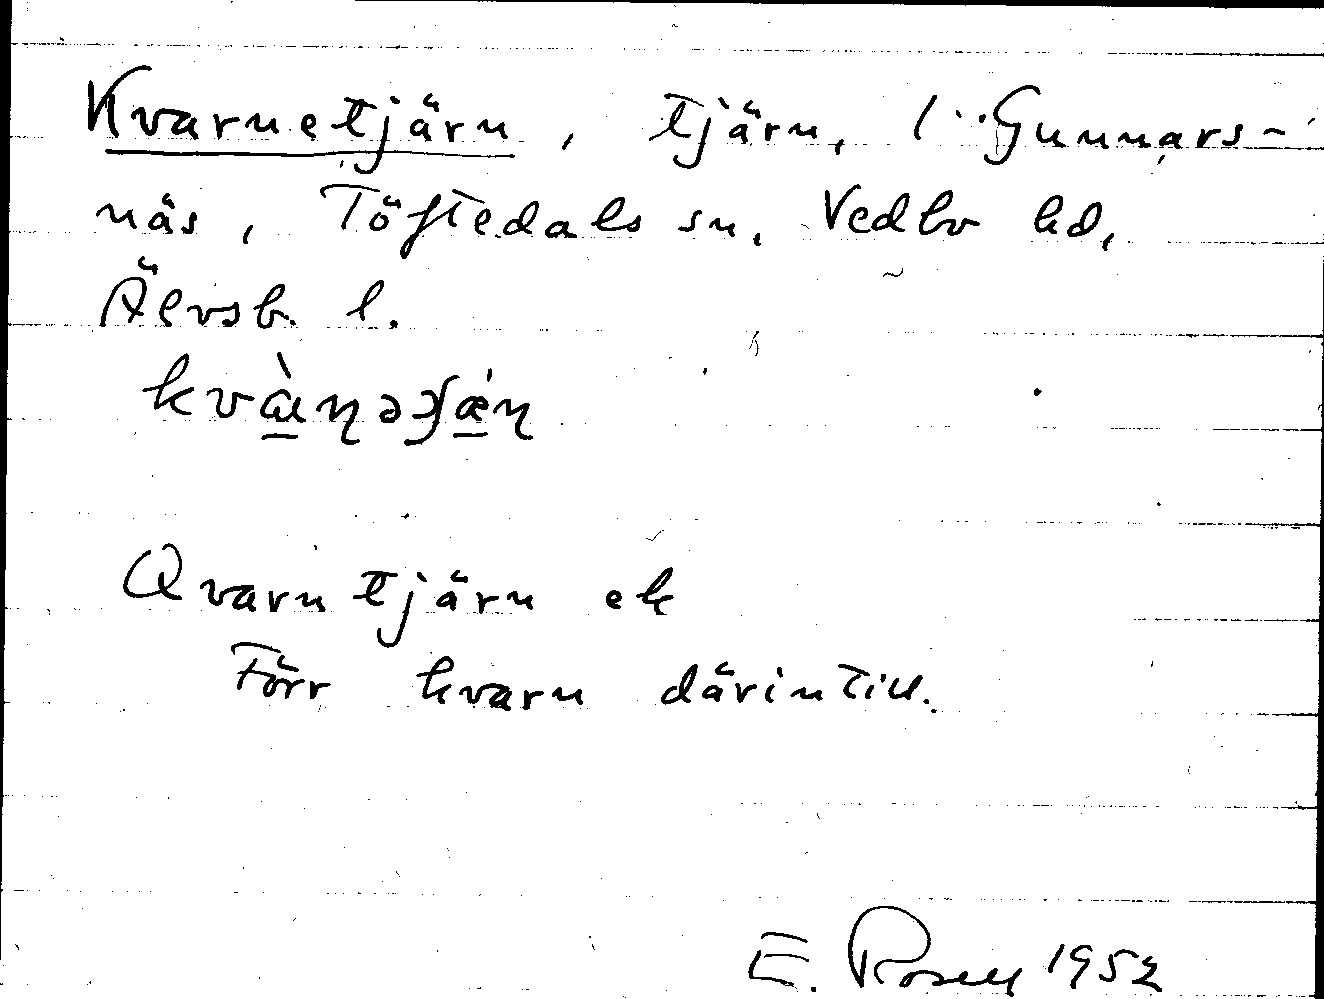 Kvarnetjärn, tjärn, i Gunnars-
näs, Töftedals sn, Vedbo hd,
Älvsb. l.
kvæ̀ɳə
Qvarntjärn ek
Förr kvarn därintill.
E. Rosell 1952